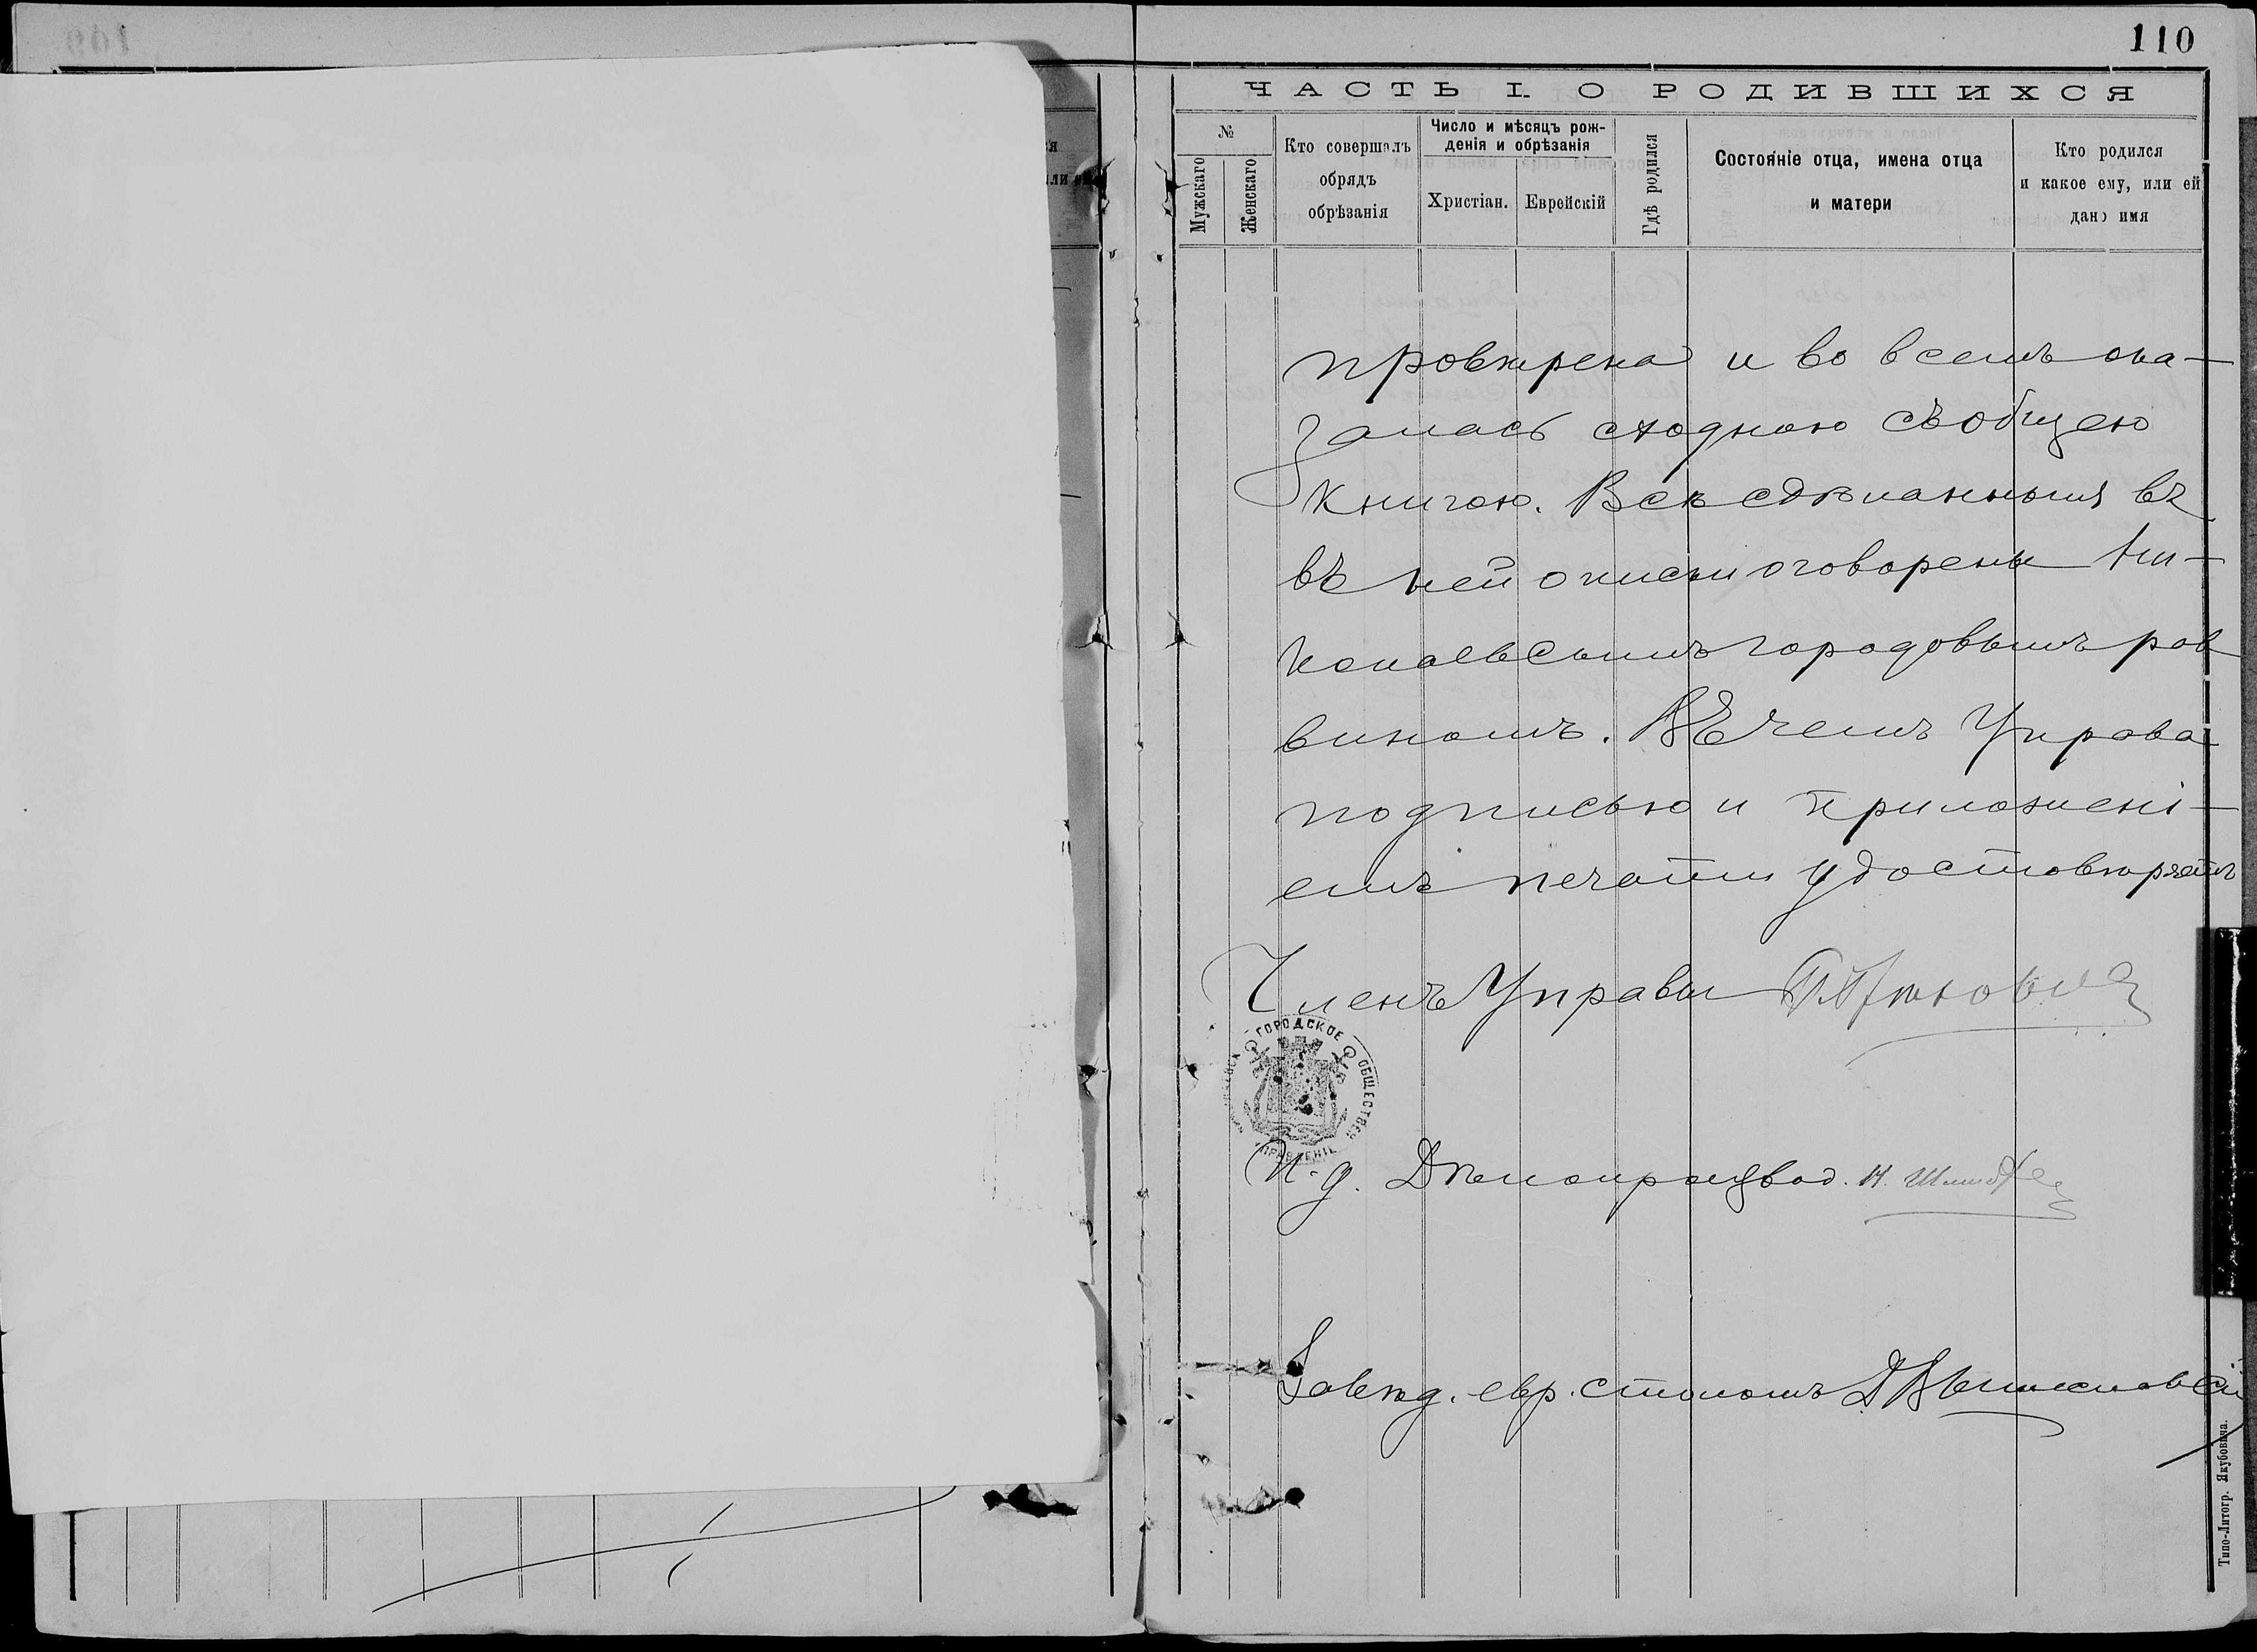 110
ЧАСТЬ I. О РОДИВШИХСЯ
№
Мужскаго
Женскаго
Кто совершалъ
обрядъ
обрѣзанія
Число и мѣсяцъ рож-
денія и обрѣзанія
Христіан.
Еврейскій
Гдѣ родился
Состояніе отца, имена отца
и матери
Кто родился
и какое ему, или ей
дано имя
провѣрена и во всемъ ока-
залась сходною съ общею
книгою. Всѣ сдѣланныя въ
въ ней описки оговорены Ни-
колаевскимъ городовымъ рав
виномъ. Въ чемъ Управа
подписью и приложені-
емъ печати удостовѣряетъ
Членъ Управы
ГОРОДСКОЕ ОБЩЕСТВЕН
УПРАВЛЕНІЕ
И. д. Дѣлопроизвод.
Завѣд. евр. столомъ
Типо-Литогр. Якубовича.